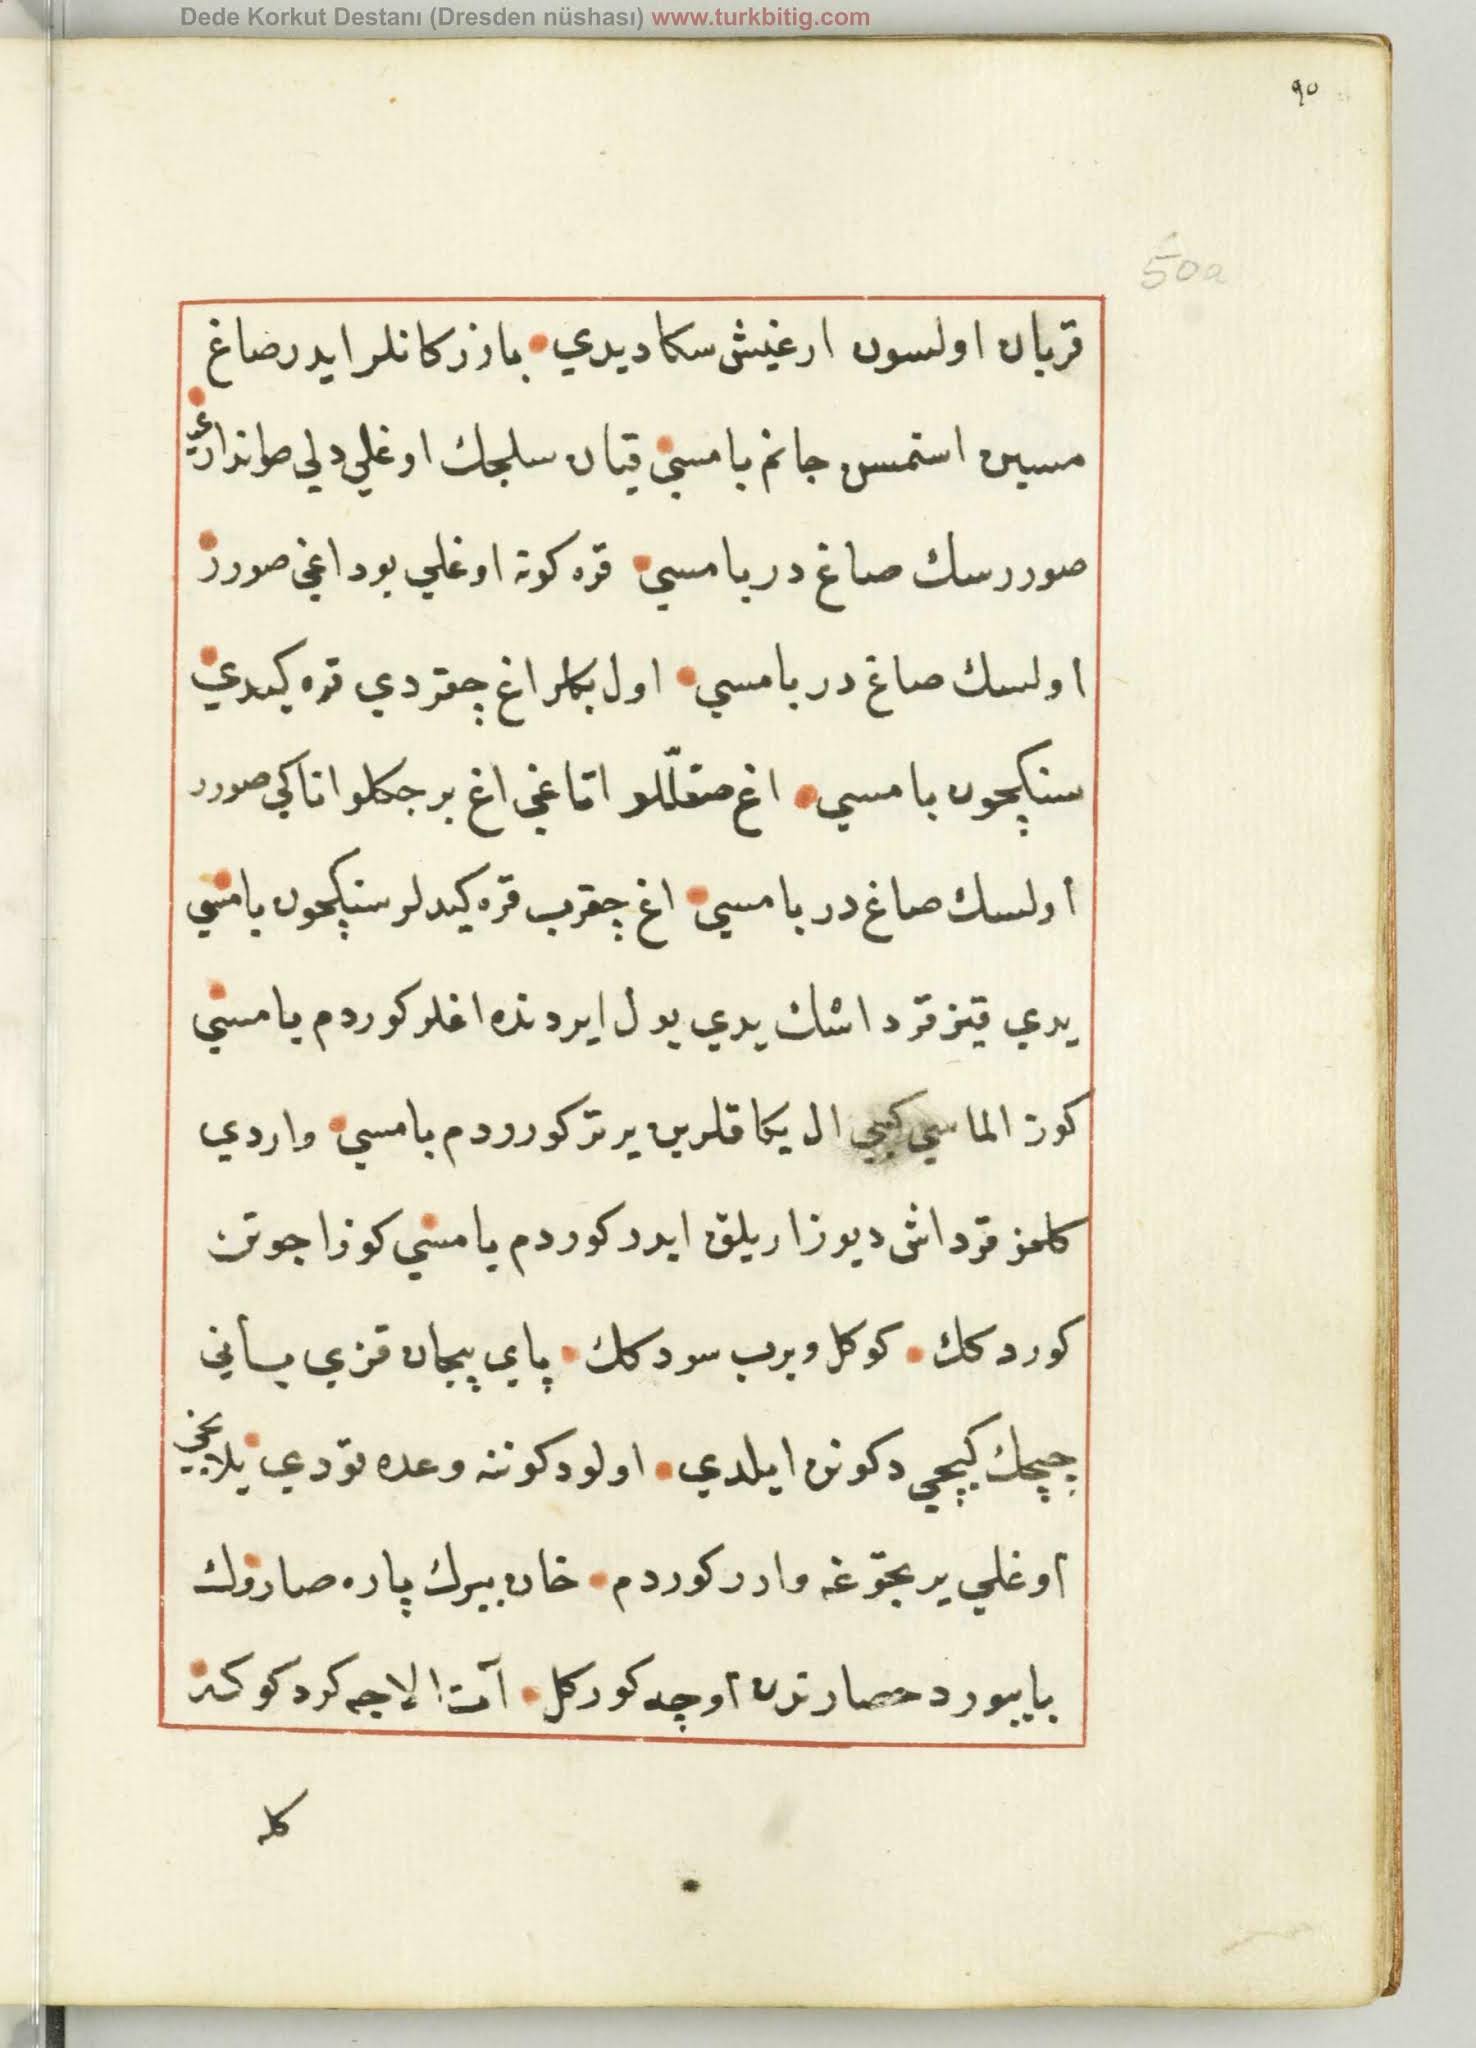 Dede Korkut Destanı (Dresden nüshası) www.turkbitig.com
٩٥
50a
قربان اولسون ارغيش سكا ديدي بازركانلر ايدر صاغ
مسين استمس جانم بامسي قيان سلجك اوغلي دلي طونداري
صوررسك صاغ در بامسي قره كونه اوغلي بوداغي صورر
اولسك صاغ در بامسي اول بكلر اغ چقردي قره كيدي
سنكچون بامسي اغ صقللو اتاغي اغ برجكلو اناكي صورر
اولسك صاغ در بامسي اغ چقرب قره كيدلر سنكچون بامسي
يدي قيز قرداشك يدي يول ايردنده اغلر كوردم بامسي
كوز الماسي كيبي ال يكاقلرين يرتر كوردم بامسي واردي
كلمز قرداش ديو زاريلق ايدر كوردم بامسي كوز اچوتن
كوردكك كوكل ويرب سودكك پاي پيجان قزي باني
چيچك كيچي دكونن ايلدي اولو دكوننه وعده قودي يلانجي
اوغلي يرتجوغه وارر كوردم خان بيرك پاره صاروك
بايبورد حصارندن اوچه كوركل آت الاجه كردكوكه
كله